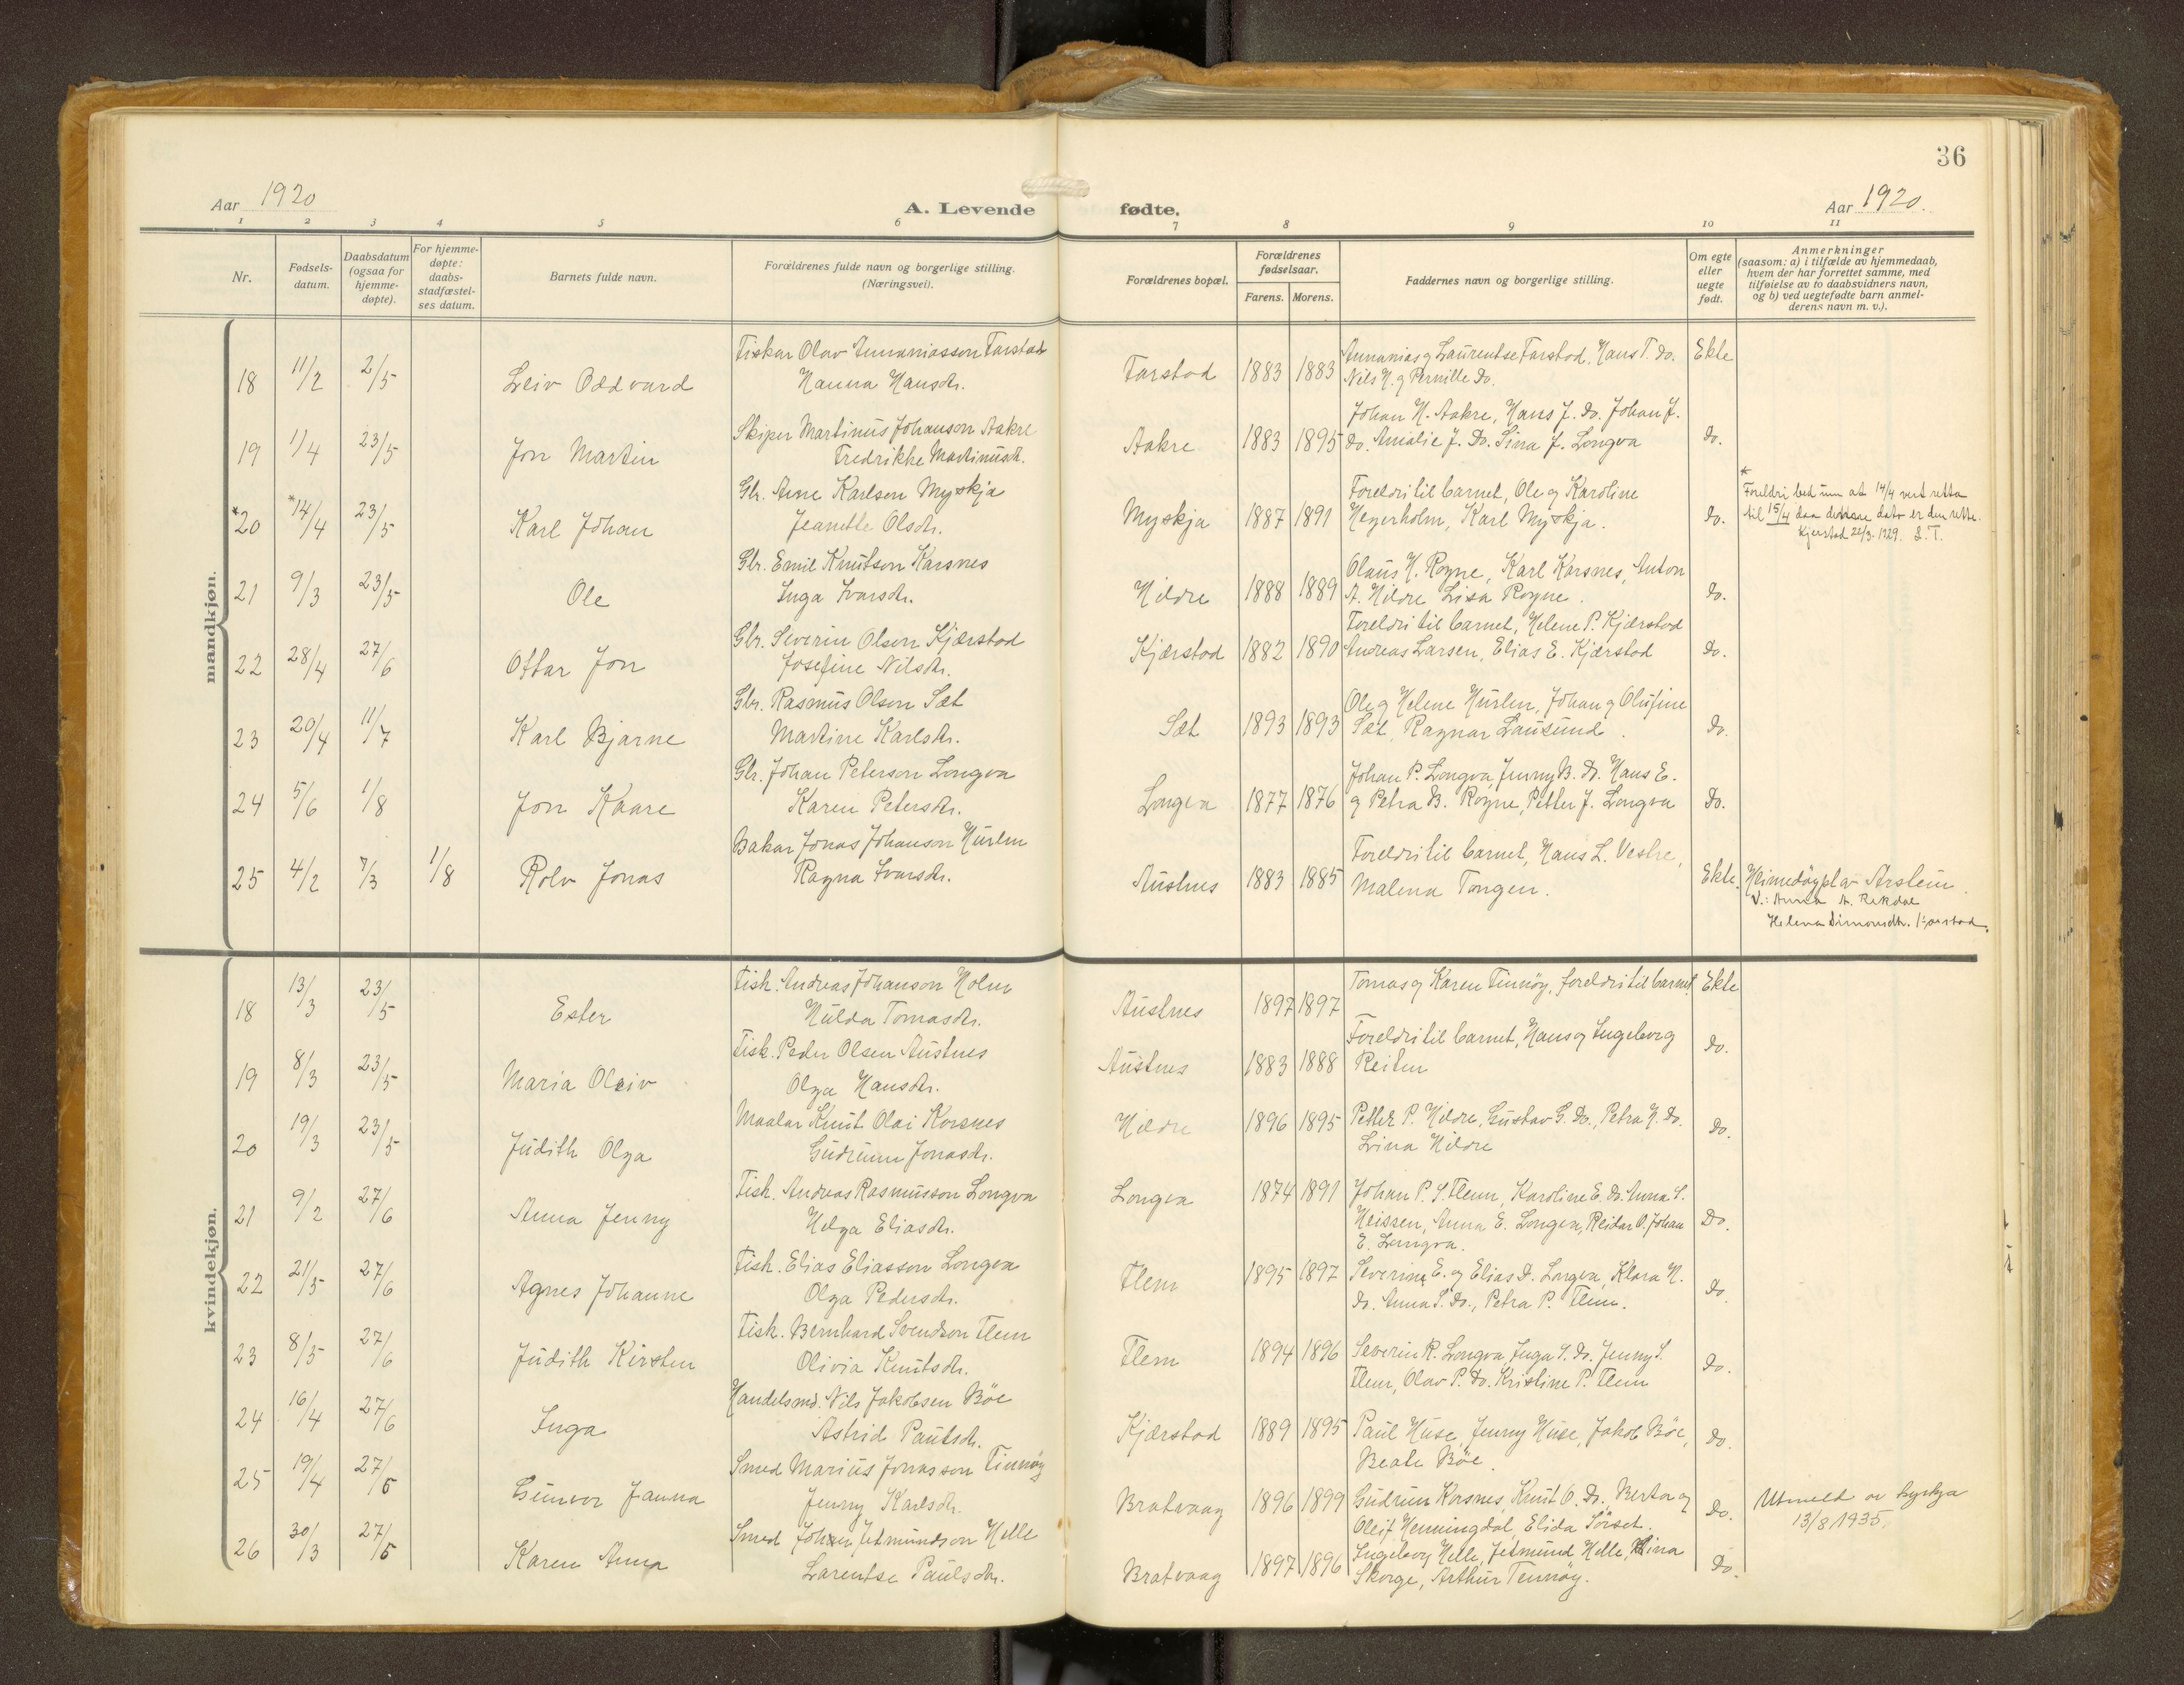 36
Aar 1920
A. Levende fødte.
Aar 1920.
1 2 3 4 5 6 7 8 9 10 11
Nr.
Fødsels-
datum.
Daabsdatum
(ogsaa for
hjemme-
døpte).
For hjemme-
døpte:
daabs-
stadfæstel-
ses datum.
Barnets fulde navn.
Forældrenes fulde navn og borgerlige stilling.
(Næringsvei).
Forældrenes bopæl.
Forældrenes
fødselsaar.
Farens. Morens.
Faddernes navn og borgerlige stilling.
Om egte
eller
uegte
født.
Anmerkninger
(saasom: a) i tilfælde av hjemmedaab,
hvem der har forrettet samme, med
tilføielse av to daabsvidners navn,
og b) ved uegtefødte barn anmel-
derens navn m. v.).
mandkjøn.
Fiskar Olav Annaniasson Farstad
Annanias og Laurentse Farstad, Hans T. do. Ekte
18 11/2 2/5 Leiv Oddvard Hanna Hansdr. Farstad 1883 1883 Nils H. og Pernille do.
Skiper Martinus Johanson Aakre
Johan H. Aakre, Hans J. do. Johan J.
19 1/4 23/5 Jon Martin Fredrikke Martinusdr. Aakre 1883 1895 do. Amalie J. do. Sina J. Longva do.
Gbr. Arne Karlsen Myskja
Foreldri til barnet, Ole og Karoline
*20 *14/4 23/5 Karl Johan Jeanette Olsdr. Myskja 1887 1891 Hegerholm, Karl Myskja. do.
*
Foreldri bed um at 14/4 vert retta
til 15/4 daa denne dato er den rette.
Kjerstad 22/3-1929. S. T.
Gbr. Emil Knutson Karsnes
Olaus H. Rogne, Karl Karsnes, Anton
21 9/3 23/5 Ole Inga Ivarsdr. Hildre 1888 1889 A. Hildre Lisa Rogne. do.
Gbr. Severin Olsen Kjærstad
Foreldri til barnet, Helene P. Kjærstad
22 28/4 27/6 Ottar Jon Josefine Nilsdr. Kjærstad 1882 1890 Andreas Larsen, Elias E. Kjærstad do.
Gbr. Rasmus Olson Sæt
Ole og Helene Hurlen, Johan og Olufine
23 20/4 11/7 Karl Bjarne Martine Karlsdr. Sæt 1893 1893 Sæt, Ragnar Lausund. do.
Gbr. Johan Peterson Longva
Johan P. Longva, Jenny B. do. Hans E.
24 5/6 1/8 Jon Kaare Karen Petersdr. Longva 1877 1876 og Petra B. Rogne, Petter J. Longva do.
Bakar Jonas Johanson Hurlen
Foreldri til barnet, Hans L. Vestre,
25 4/2 7/3 1/8 Rolv Jonas Ragna Ivarsdr. Austnes 1883 1885 Malena Tongen. Ekte. Heimedøypt av Arstein.
V.: Anna A. Rekdal
Helena Simonsdtr.
kvindekjøn.
Fisk. Andreas Johanson Holm
Tomas og Karen Finnøy, foreldri til barnet Ekte
18 13/3 23/5 Ester Hulda Tomasdr. Austnes 1897 1897
Fisk. Peder Olsen Austnes
Foreldri til barnet, Hans og Ingeborg
19 8/3 23/5 Maria Oleiv Olga Hansdr. Austnes 1883 1888 Reiten do.
Maalar Knut Olai Korsnes
20 19/3 23/5 Judith Olga Gudrunn Jonasdr. Hildre 1896 1895 Petter P. Hildre, Gustav G. do., Petra H. do. do.
Lina Hildre
Fisk. Andreas Rasmusson Longva
21 9/2 27/6 Anna Jenny Helga Eliasdr. Longva 1874 1891 Johan P. S. Flem, Karoline E. do. Anna S.
Heissen, Anna E. Longva, Reidar O. Johan do.
E. Longva.
Fisk. Elias Eliasson Longva
22 21/5 27/6 Agnes Johanne Olga Pedersdr. Flem 1895 1897 Severine E. og Elias D. Longva, Klara N.
do. Anna S. do., Petra P. Flem. do.
Fisk. Bernhard Svendson Flem
23 8/5 27/6 Judith Kirsten Olivia Knutsdr. Flem 1894 1896 Severin R. Longva, Inga S. do. Jenny S.
Flem, Olav P. do. Kristine P. Flem do.
Handelsmd. Nils Jakobsen Böe
24 16/4 27/6 Inga Astrid Paulsdr. Kjærstad 1889 1895 Paul Huse, Jenny Huse, Jakob Böe, do.
Beate Böe.
Smed Marius Jonasson Finnøy
25 19/4 27/6 Gunvor Janna Jenny Karlsdr. Bratvaag 1896 1899 Gudrun Korsnes, Knut O. do., Berta og do. Utmeldt av kyrkja
Oleif Henningdal, Elida Sörset. 13/8 1935.
Smed Johan Jetmundson Helle
26 30/3 27/6 Karen Anna Larentse Paulsdr. Bratvaag 1897 1896 Ingeborg Helle, Jetmund Helle, Mina
Skorge, Arthur Tennøy. do.